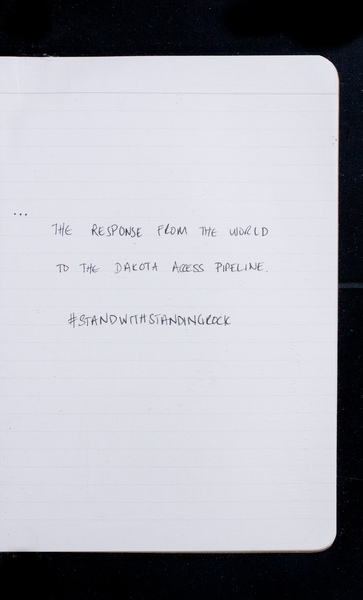 ...
THE RESPONSE FROM THE WORLD
TO THE DAKOTA ACESS PIPELINE.
#STANDWITHSTANDINGROCK